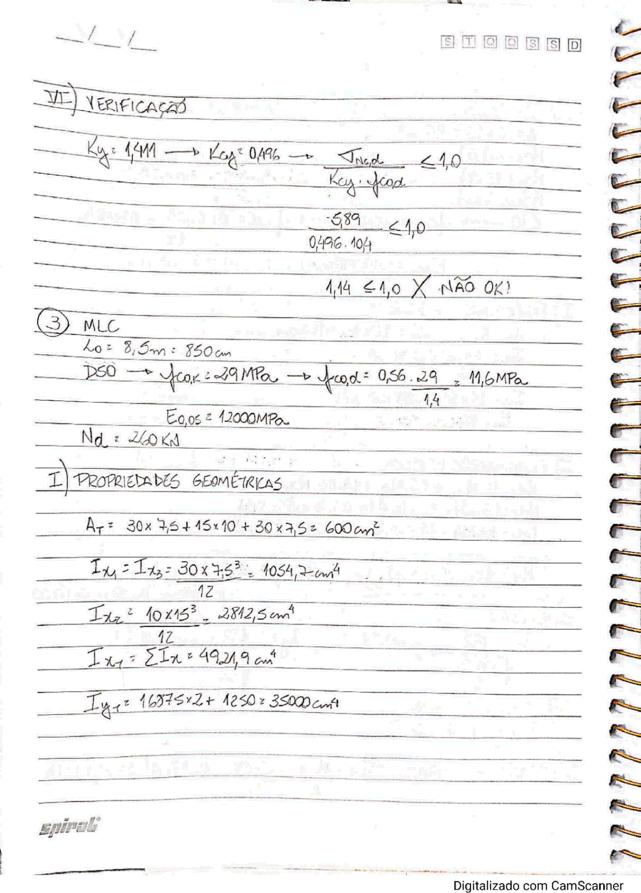 S T Q Q S S D
VI) VERIFICAÇÃO
Ky = 1,411 → Kcy = 0,496 → σNc,d / Kcy · fcod ≤ 1,0
5,89 / 0,496 · 10,4 ≤ 1,0
1,14 ≤ 1,0 X NÃO OK!
3 MLC
Lo = 8,5m = 850cm
D50 → fco,k = 29MPa → fco,d = 0,56 · 29 / 1,4 = 11,6MPa
E0,05 = 12000MPa
Nd = 260KN
I) PROPRIEDADES GEOMÉTRICAS
AT = 30x7,5 + 15x10 + 30x7,5 = 600cm²
Ix1 = Ix3 = 30x7,5³ / 12 = 1054,7cm⁴
Ix2 = 10x15³ / 12 = 2812,5cm⁴
IxT = ΣIx = 4921,9cm⁴
IyT = 16875x2 + 1250 = 35000cm⁴
spiral
Digitalizado com CamScanner